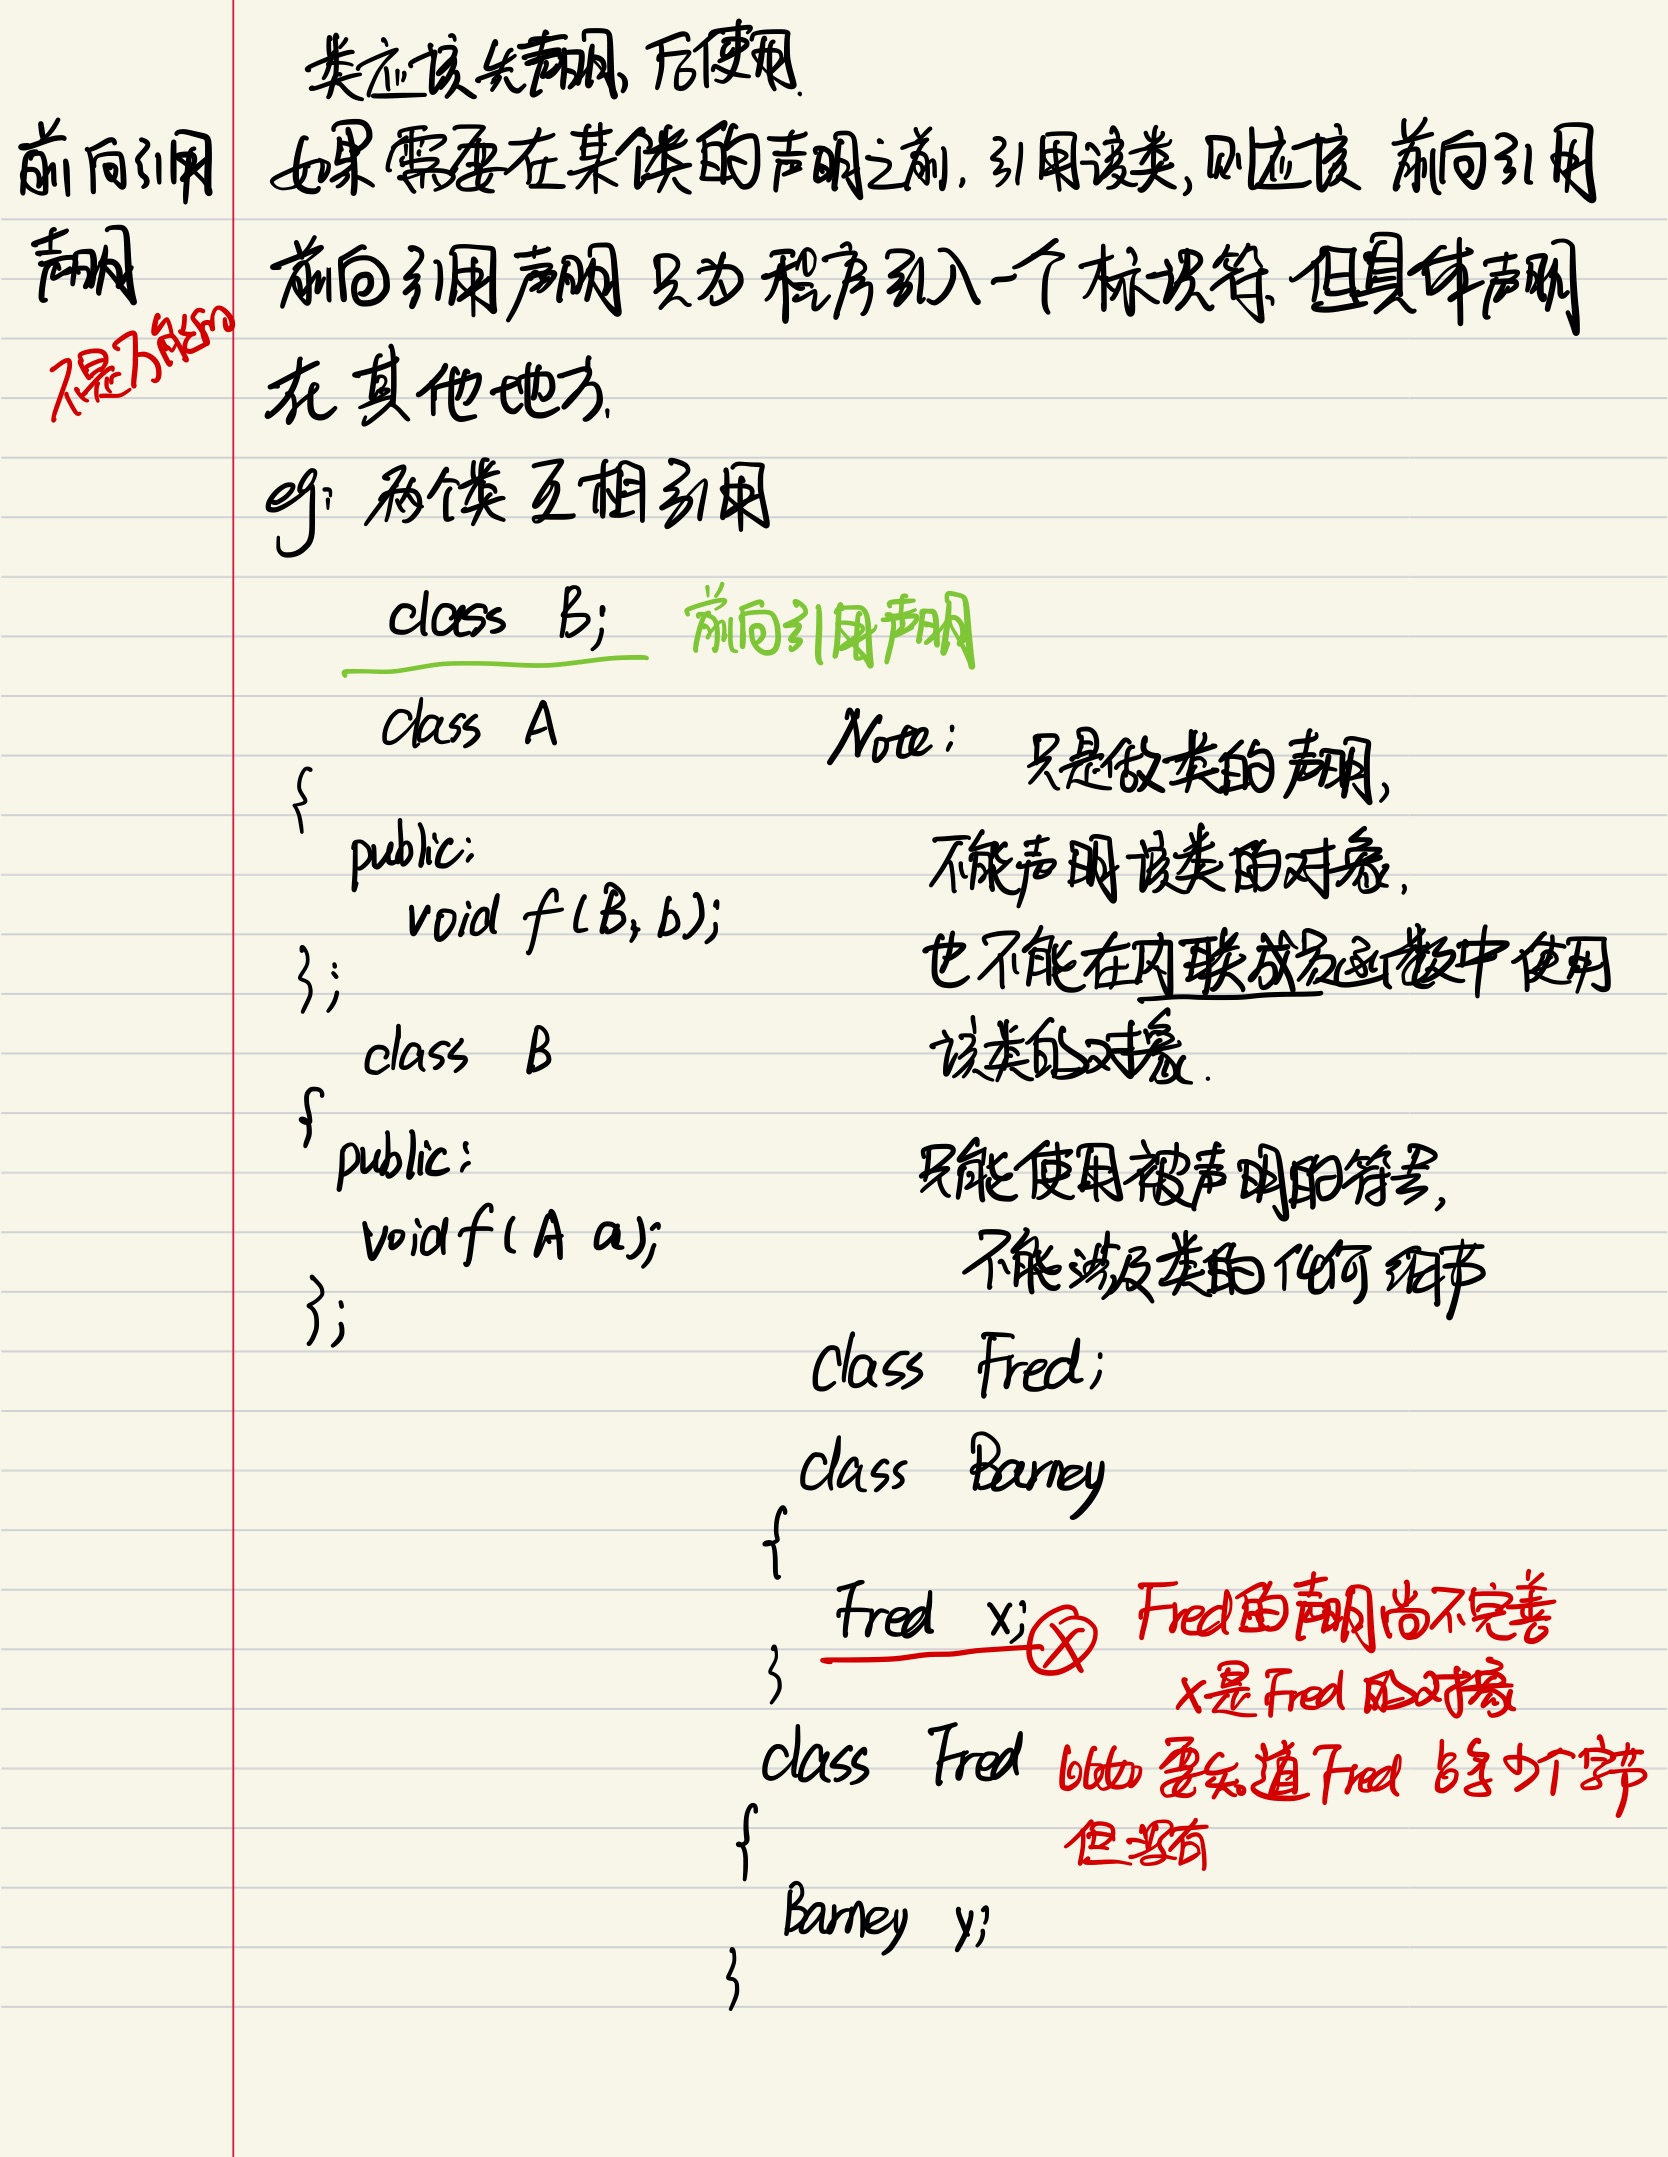 类应该先声明,后使用.
前向引用
声明
不是万能的
如果需要在某个类的声明之前,引用该类,则应该 前向引用
前向引用声明 只为程序引入一个标识符,但具体声明
在其他地方.
eg: 两个类互相引用
class B; 前向引用声明
class A
{
public:
void f(B, b);
};
class B
{
public:
void f(A a);
};
Note: 只是做类的声明,
不能声明该类的对象,
也不能在内联成员函数中使用
该类的对象.
只能使用被声明的符号,
不能涉及类的任何细节
class Fred;
class Barney
{
Fred x; X Fred的声明尚不完善
x是Fred的对象
}
class Fred 要知道Fred 占多少个字节
但没有
{
Barney y;
}